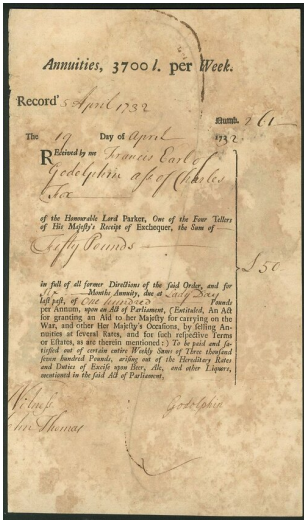 Annuities, 3700 l. per Week.
Record' 5 April 1732
Numb. 261
The 19 Day of April 1732.
Received by me Francis Earl of
Godolphin asse of Charles
Fox
of the Honourable Lord Parker, One of the Four Tellers
of His Majesty's Receipt of Exchequer, the Sum of
Fifty Pounds
£50
in full of all former Directions of the said Order, and for
Six Months Annuity, due at Lady Day
last past, of One hundred Pounds
per Annum, upon an Act of Parliament, (Entituled, An Act
for granting an Aid to her Majesty for carrying on the
War, and other Her Majesty's Occasions, by selling Annui-
ties at several Rates, and for such respective Terms
or Estates, as are therein mentioned:) To be paid and sa-
tisfied out of certain entire Weekly Sums of Three thousand
seven hundred Pounds, arising out of the Hereditary Rates
and Duties of Excise upon Beer, Ale, and other Liquors,
mentioned in the said Act of Parliament.
Witness
John Thomas
Godolphin